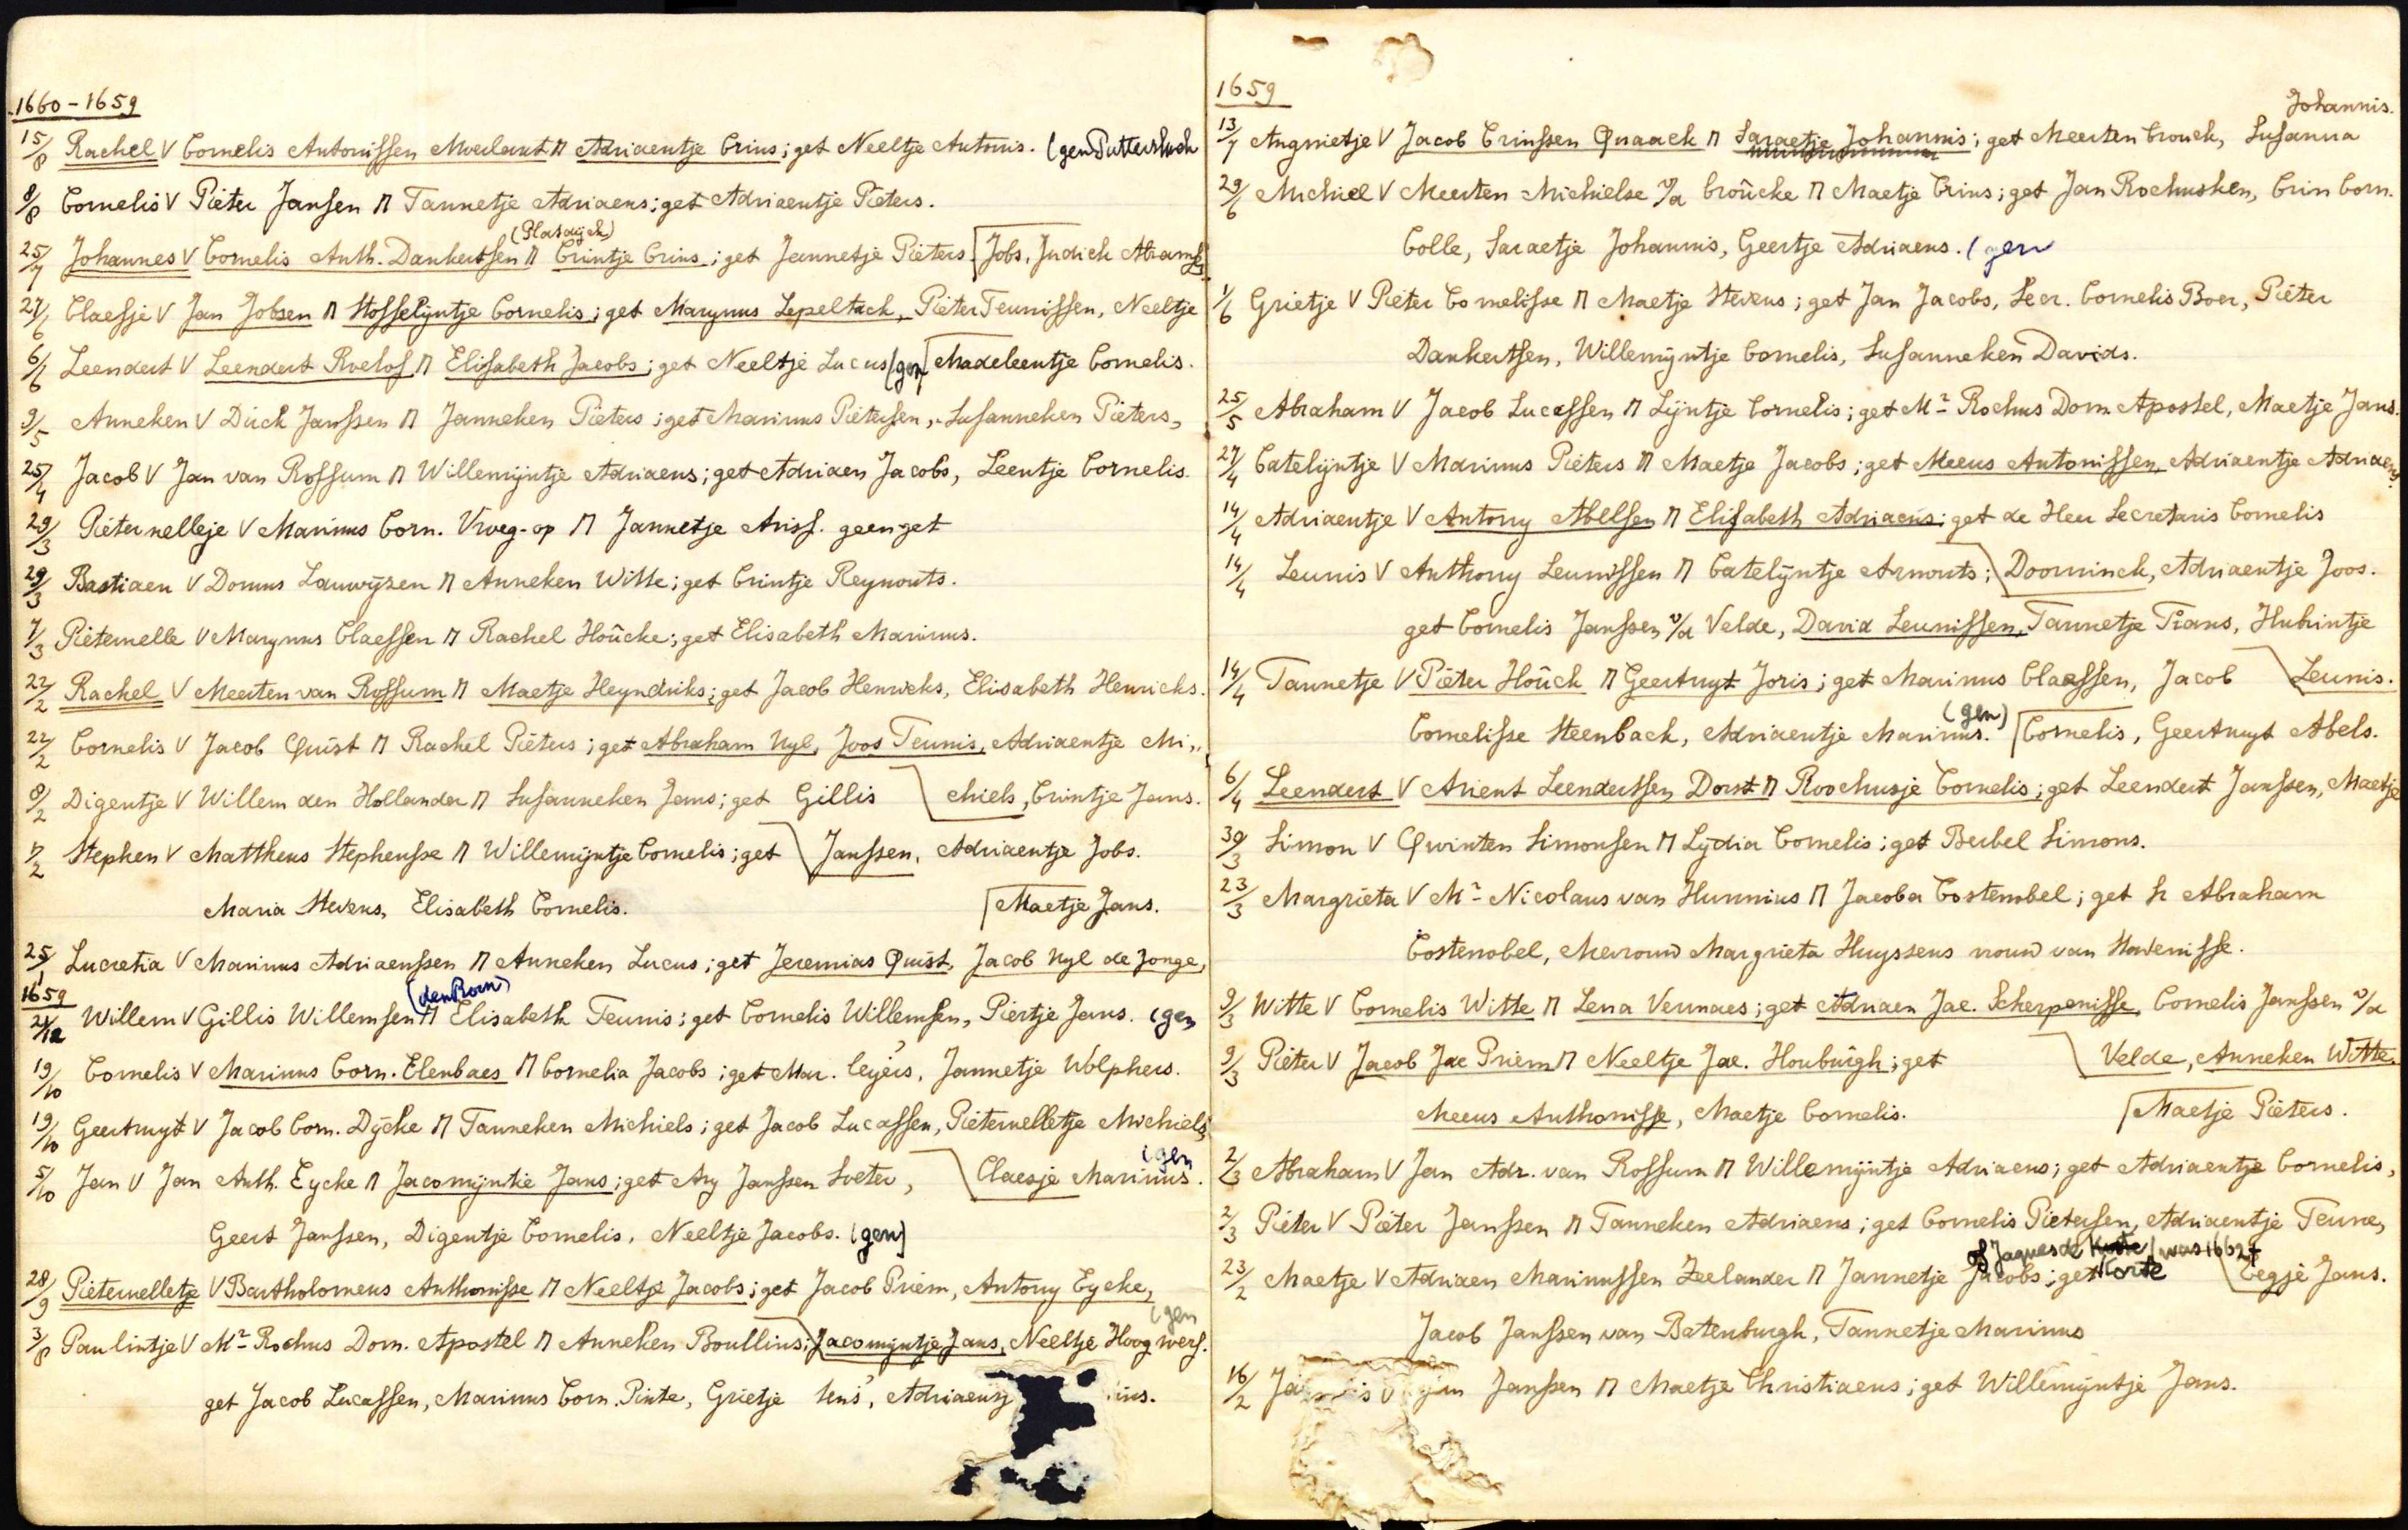 1660-1659
15/8 Rachel V Cornelis Antonissen Moelant M Adriaentje Crins; get Neeltje Antonis. (gen Puttershoek
8/8 Cornelis V Pieter Jansen M Tannetje Adriaens; get Adriaentje Pieters.
(Plasdijck)
25/7 Johannes V Cornelis Anth. Dankertsen M Crintje Crins; get Jannetje Pieters [Jobs, Judich Abrams
27/6 Claesje V Jan Jobsen M Hosselijntje Cornelis; get Marynus Lepeltack, Pieter Teunissen, Neeltje
6/6 Leendert V Leendert Roelof M Elisabeth Jacobs; get Neeltje Lucus (gen [Madeleentje Cornelis.
9/5 Anneken V Dirck Janssen M Janneken Pieters; get Marinus Pietersen, Susanneken Pieters,
25/4 Jacob V Jan van Rossum M Willemijntje Adriaens; get Adriaen Jacobs, Leentje Cornelis.
29/3 Pieternelleje V Marinus Corn. Vroeg-op M Jannetje Ariss. geen get
29/3 Bastiaen V Donus Lauwijzen M Anneken Witte; get Crintje Reynouts.
7/3 Pieternelle V Marynus Claessen M Rachel Houcke; get Elisabeth Marinus.
22/2 Rachel V Meerten van Rossum M Maetje Heyndriks; get Jacob Henricks, Elisabeth Henricks.
22/2 Cornelis V Jacob Quist M Rachel Pieters; get Abraham Nyl, Joos Teunis, Adriaentje Mi,,
8/2 Digentje V Willem den Hollander M Susanneken Jans; get Gillis \ chiels, Crintje Jans.
7/2 Stephen V Mattheus Stephensse M Willemijntje Cornelis; get \ Janssen, Adriaentje Jobs.
Maria Stevens, Elisabeth Cornelis. [Maetje Jans.
25/1 Lucretia V Marinus Adriaenssen M Anneken Lucus; get Jeremias Quist, Jacob Nyl de Jonge,
1659 (den Boen)
21/12 Willem V Gillis Willemsen M Elisabeth Teunis; get Cornelis Willemsen, Piertje Jans. (gen
19/10 Cornelis V Marinus Corn. Elenbaes M Cornelia Jacobs; get Mar. leyers, Jannetje Wolphers.
19/10 Geertruyt V Jacob Corn. Dijcke M Tanneken Michiels; get Jacob Lucassen, Pieternelletje Michiels
(gen
5/10 Jan V Jan Anth. Eycke M Jacomijntie Jans; get Ary Janssen Soeter, \ Claesje Marinus.
Geert Janssen, Digentje Cornelis, Neeltje Jacobs. (gen)
28/9 Pieternelletje V Bartholomeus Anthonisse M Neeltje Jacobs; get Jacob Priem, Antony Eycke,
(gen
3/8 Paulintje V Mr Rochus Dom. Apostel M Anneken Boullins; \ Jacomijntje Jans, Neeltje Hoogwerf.
get Jacob Lucassen, Marinus Corn. Pinte, Grietje
1659
Johannis.
13/7 Angnietje V Jacob Crinssen Quaack M Saraetje Johannis; get Meerten brouck, Susanna
29/6 Michiel V Meerten Michielse v/d broucke M Maetje Crins; get Jan Rochusken, Crin Corn.
Colle, Saraetje Johannis, Geertje Adriaens. (gen
1/6 Grietje V Pieter Cornelisse M Maetje Stevens; get Jan Jacobs, Secr. Cornelis Boer, Pieter
Dankertsen, Willemijntje Cornelis, Susanneken Davids.
25/5 Abraham V Jacob Lucassen M Lijntje Cornelis; get Mr Rochus Dom. Apostel, Maetje Jans.
27/4 Catelijntje V Marinus Pieters M Maetje Jacobs; get Meeus Antonissen, Adriaentje Adriaens.
14/4 Adriaentje V Antony Abelsen M Elisabeth Adriaens; get de Heer Secretaris Cornelis
14/4 Leunis V Anthony Leunissen M Catelijntje Arnouts; \ Doorninck, Adriaentje Joos.
get Cornelis Janssen v/d Velde, David Leunissen, Tannetje Tians, Hubrintje
14/4 Tannetje V Pieter Houck M Geertruyt Joris; get Marinus Claessen, Jacob \ Leunis.
(gen)
Cornelisse Steenback, Adriaentje Marinus. [Cornelis, Geertruyt Abels.
6/4 Leendert V Arient Leendertsen Dorst M Roochusje Cornelis; get Leendert Janssen, Maetje
30/3 Simon V Qwinten Simonsen M Lydia Cornelis; get Berbel Simons.
23/3 Margrieta V Mr Nicolaus van Hunnius M Jacoba Costenobel; get Sr Abraham
Costenobel, Mevrouw Margrieta Huyssens vrouw van Stavenisse.
9/3 Witte V Cornelis Witte M Lena Vermaes; get Adriaen Jac. Scherpenisse, Cornelis Janssen v/d
9/3 Pieter V Jacob Jac Priem M Neeltje Jac. Houburgh; get \ Velde, Anneken Witte.
Meeus Anthonisse, Maetje Cornelis. [Maetje Pieters.
2/3 Abraham V Jan Adr. van Rossum M Willemijntje Adriaens; get Adriaentje Cornelis,
2/3 Pieter V Pieter Janssen M Tanneken Adriaens; get Cornelis Pietersen, Adriaentje Teune,
of Jaques de
23/2 Maetje V Adriaen Marinussen Zeelander M Jannetje Jacobs; get Korte \ Eegje Jans.
Jacob Janssen van Batenburgh, Tannetje Marinus
16/2 Janssen M Maetje Christiaens; get Willemijntje Jans.